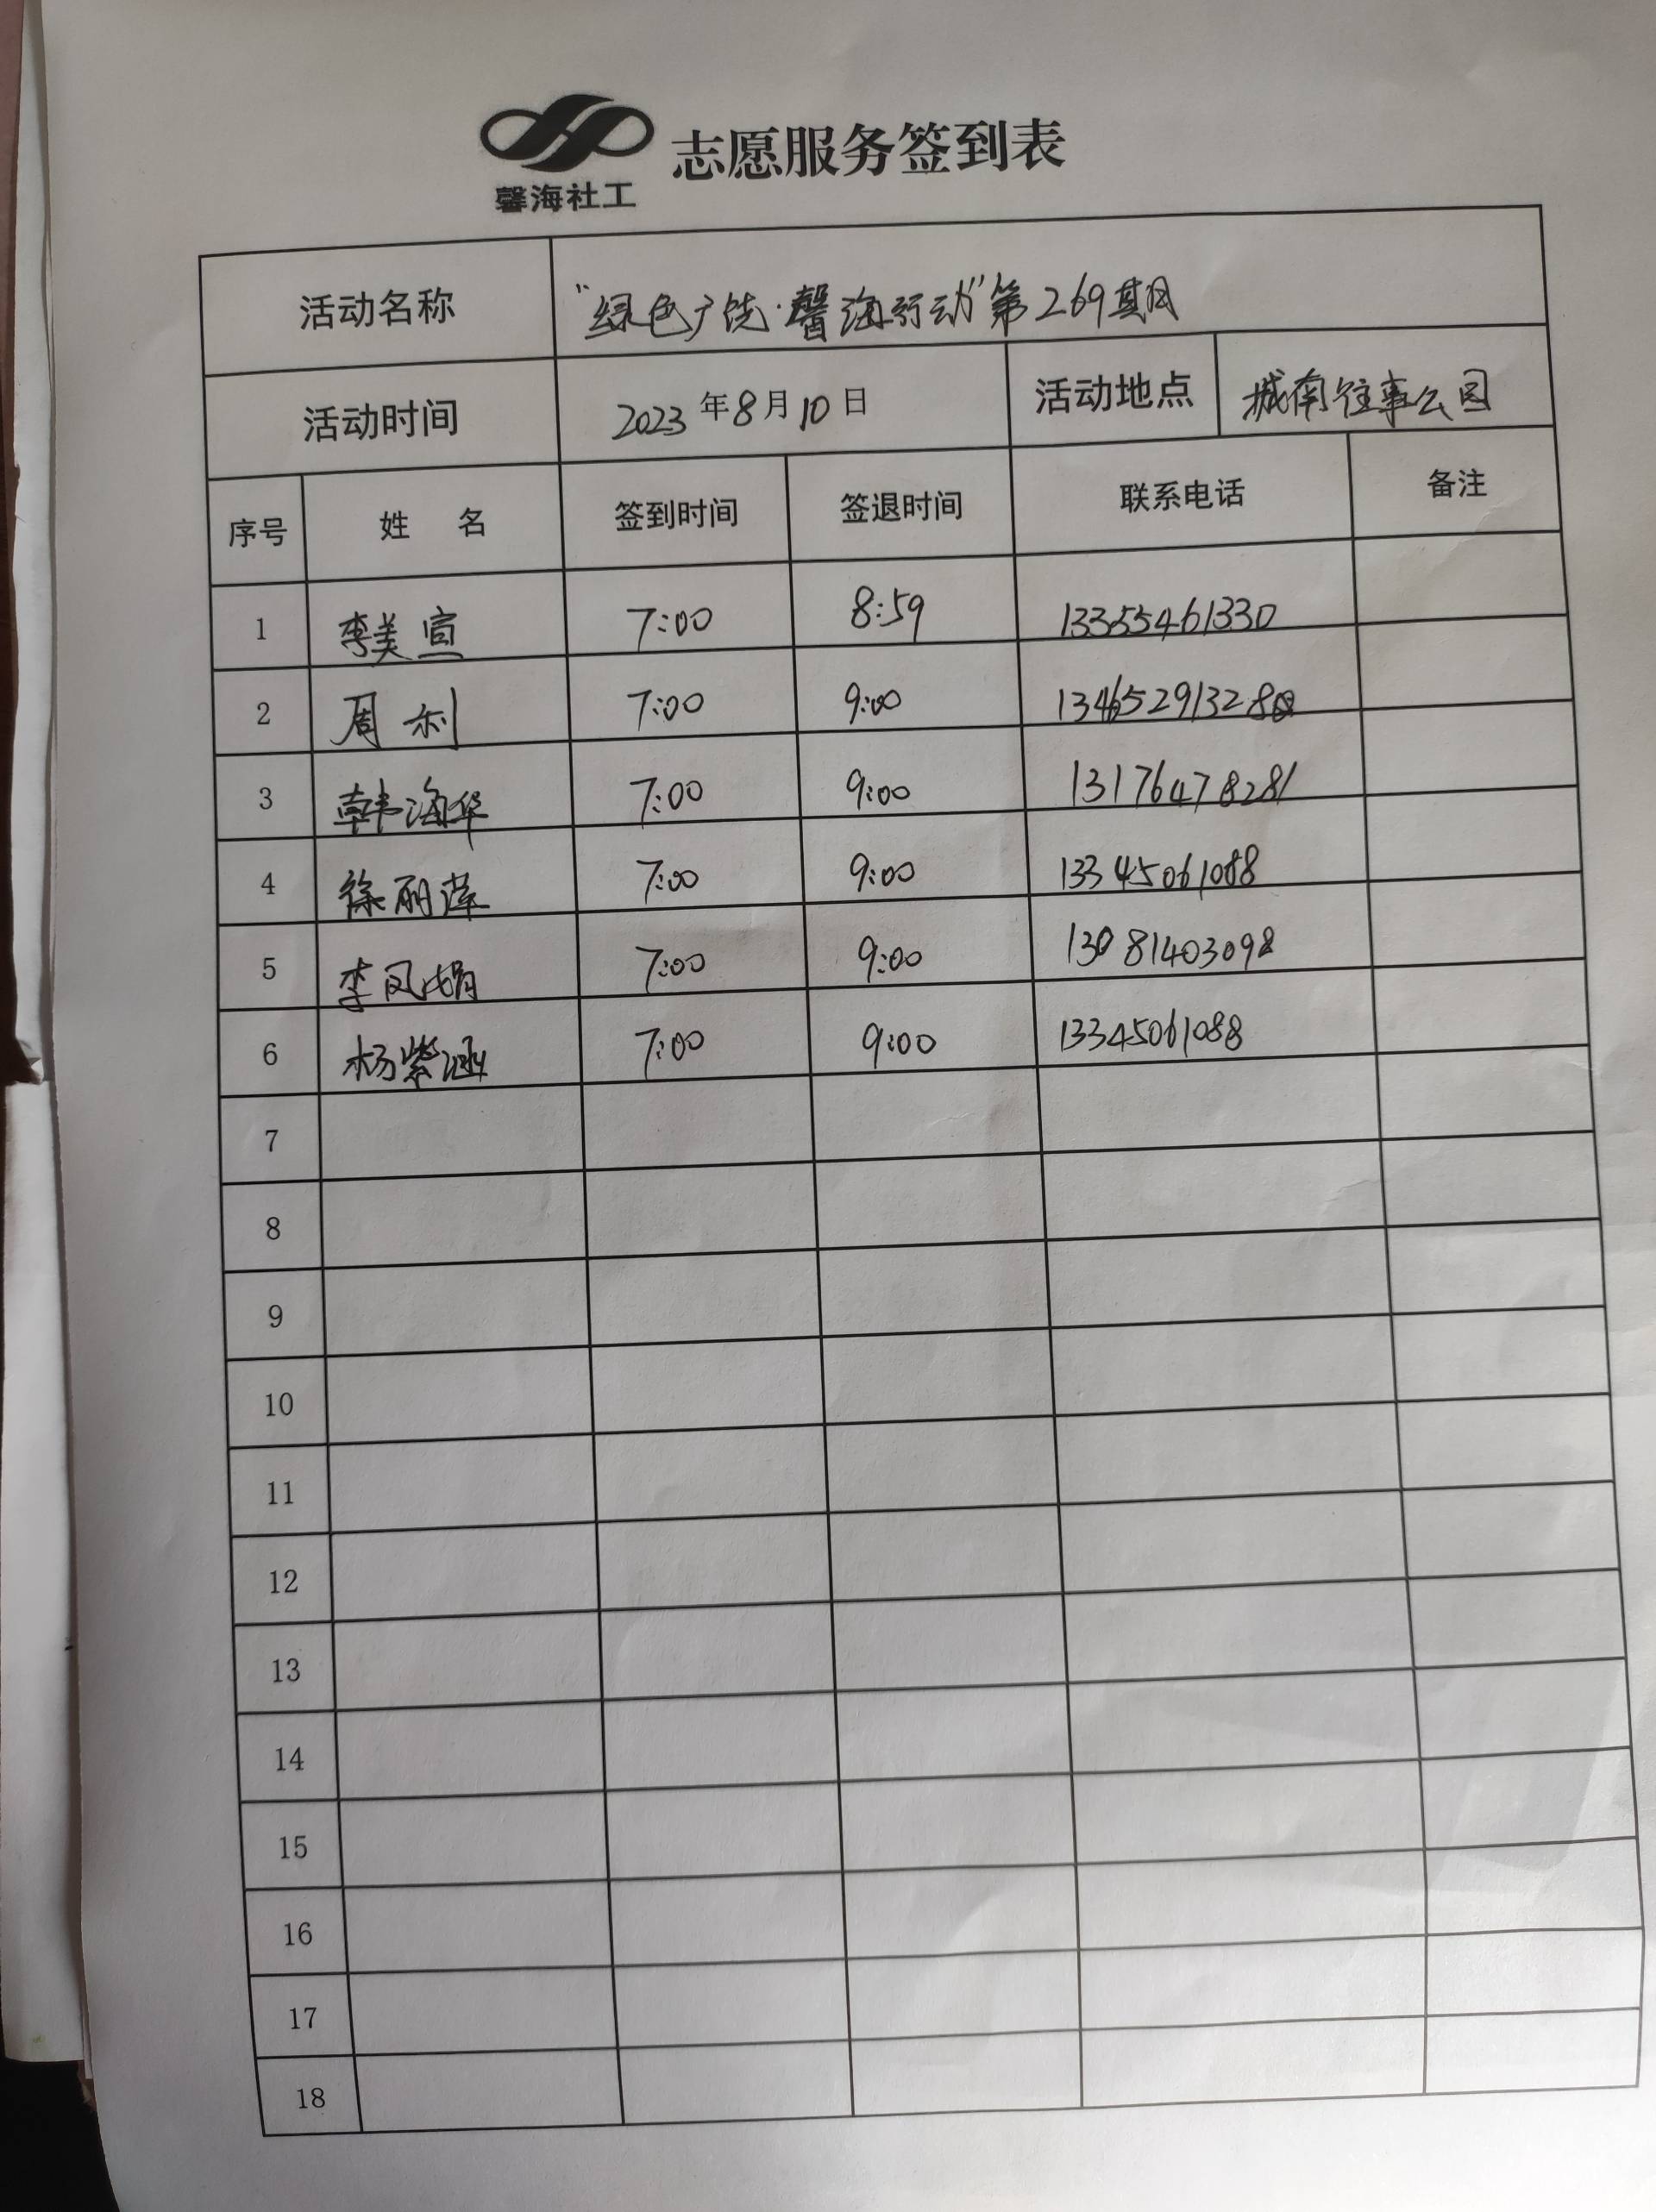 馨海社工
志愿服务签到表
活动名称 "绿色广饶·馨海行动"第269期
活动时间 2023年8月10日 活动地点 城南往事公园
序号 姓 名 签到时间 签退时间 联系电话 备注
1 李美宣 7:00 8:59 13355461330
2 周利 7:00 9:00
3 韩海华 7:00 9:00 13176478281
4 徐丽萍 7:00 9:00 13345061088
5 李凤娟 7:00 9:00 13081403098
6 杨紫涵 7:00 9:00 13345061088
7
8
9
10
11
12
13
14
15
16
17
18